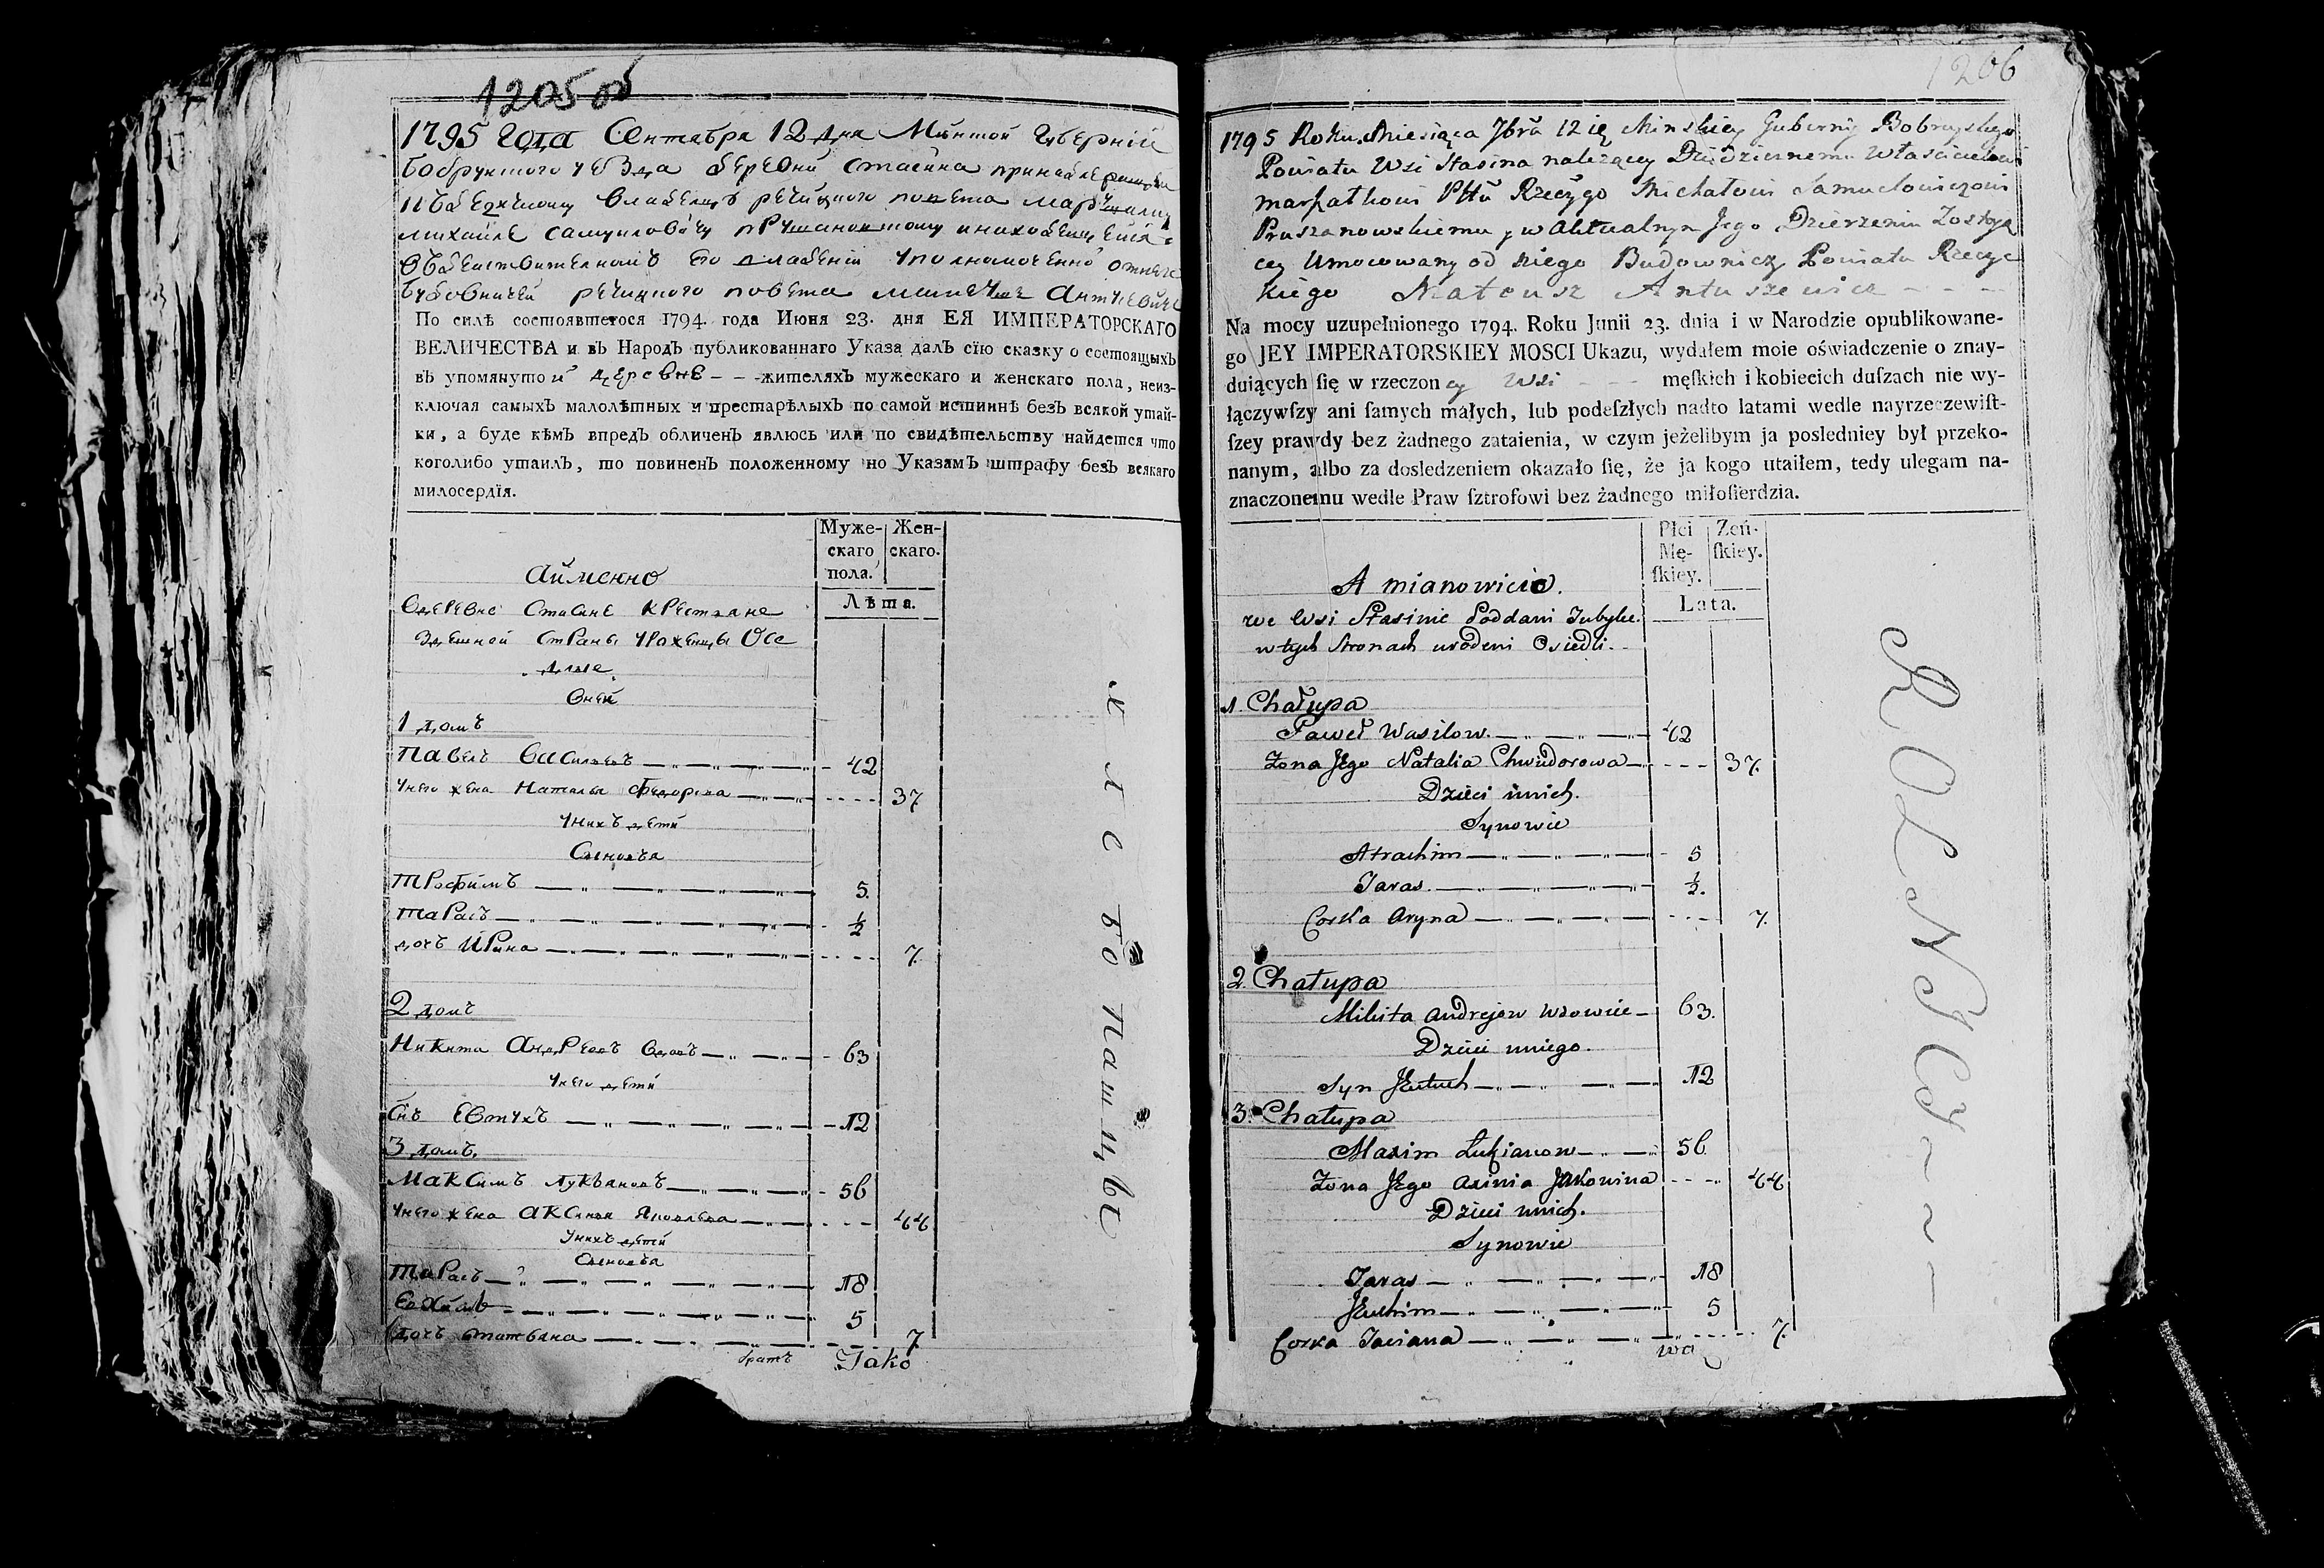 1205 об
1795 года Сентября 12 дня Минской Губернїй
Бобруйского уезда деревни Стасина принадлежащей
Речицкого повета Маршалку
Михайле Самуйловичу Прушановскому
его владении уполномоченно отнего
Будовничей Речицкого повета
По силѣ состоявшегося 1794. года Июня 23. дня ЕЯ ИМПЕРАТОРСКАГО
ВЕЛИЧЕСТВА и въ Народъ публикованнаго Указа далъ сїю сказку о состоящыхъ
въ упомянутой деревне - - -жителяхъ мужескаго и женскаго пола, неиз-
ключая самыхъ малолѣтных и престарѣлыхъ по самой истиннѣ безъ всякой утай-
ки, а буде кѣмъ впредъ обличенъ явлюсь или по свидѣтельству найдется что
коголибо утаилъ, то повиненъ положенному по Указамъ штрафу безъ всякаго
милосердїя.
Муже-
скаго
пола.
Жен-
скаго.
Лѣта.
Айменно
Вдеревне Стасине Крестьяне
Здешной Страны Уроженцы Осе
длые
Вней
1 домъ
Павелъ Васильевъ 42
Унего жена Наталья Федорова 37
Унихъ дети
Сыновья
Трофимъ 5.
Тарасъ ½
дочь Ирина 7.
2 домъ
Никита Андреевъ вдовъ 63
Унего дети
Снъ Евтухъ 12
3 домъ.
Максимъ Лукьяновъ 56
Унего жена Аксинья Яковлева 44
Унихъ дети
Сыновья
Тарасъ 18
5
дочь татьяна 7
братъ Jako
1206
1795 Roku Miesiąca 7bra 12 Minskiey Gubernij Bobruyskiego
Powiatu Wsi Stasina należącey Dziedzicznemu Właścicielowi
Marszałkowi Pttu Rzeczygo Michałowi Samuelowiczowi
Pruszanowskiemu y w Aktualnym Jego Dzierżeniu Zostaią
cey Umocowany od niego Budowniczy Powiatu Rzeczyc
kiego Mateusz Antuszewicz - - -
Na mocy uzupełnionego 1794. Roku Junii 23. dnia i w Narodzie opublikowane-
go JEY IMPERATORSKIEY MOSCI Ukazu, wydałem moie oświadczenie o znay-
duiących ſię w rzeczoney Wsi - - - męſkich i kobiecich duſzach nie wy-
łączywſzy ani ſamych małych, lub podeſzłych nadto latami wedle nayrzeczewiſt-
ſzey prawdy bez żadnego zataienia, w czym jeżelibym ja posledniey był przeko-
nanym, albo za dosledzeniem okazało ſię, że ja kogo utaiłem, tedy ulegam na-
znaczonemu wedle Praw ſztrofowi bez żadnego miłoſierdzia.
Płci
Mę-
ſkiey.
Zeń-
ſkiey.
Lata.
A mianowicie.
we Wsi Stasinie Poddani Tubylce.
w tych Stronach urodzeni Osiedli.
1. Chałupa
Paweł Wasilow 42
Żona Jego Natalia Chwudorowa 37.
Dzieci unich.
Synowie
Atrachim 5
Taras ½.
Corka Aryna 7.
2. Chałupa
Mikita Andrejew Wdowiec 63.
Dzieci uniego.
Syn Jewtuch 12
3. Chałupa
Maxim Łukianow 56.
Żona Jego Axinia Jakowina 44
Dzieci unich.
Synowie
Taras 18
5
Corka Taciana 7.
wa
Хлебопашцы
ROLNICY